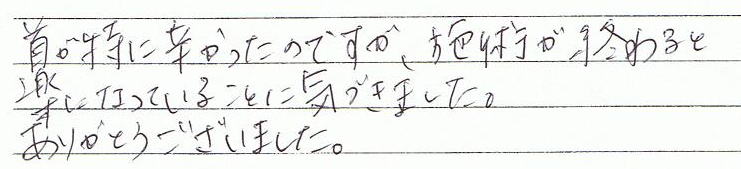 首が特に辛かったのですが、施術が終わると
楽になっていることに気づきました。
ありがとうございました。